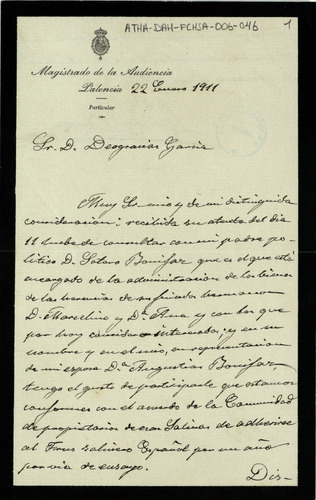 ATHA-DAH-FCHSA-006-046
1
Magistrado de la Audiencia
Palencia 22 Enero 1911
Particular
Sr. D. Deogracias García
Muy Sr. mio y de mi distinguida
consideracion: recibida su atenta del dia
11 hube de consultar con mi padre po-
litico D. Sotero Bonifaz que es el que está
encargado de la administracion de los bienes
de las herencias de su finada hermano
D. Marcelino y Dª Ana y con los que
por hoy considero interesados; y en su
nombre y en el mio, en representacion
de mi esposa Dª Angustias Bonifaz,
tengo el gusto de participarle que estamos
conformes con el acuerdo de la Comunidad
de propietarios de esas Salinas de adherirse
al Trus salinero Español por un año
por via de ensayo.
Dis-